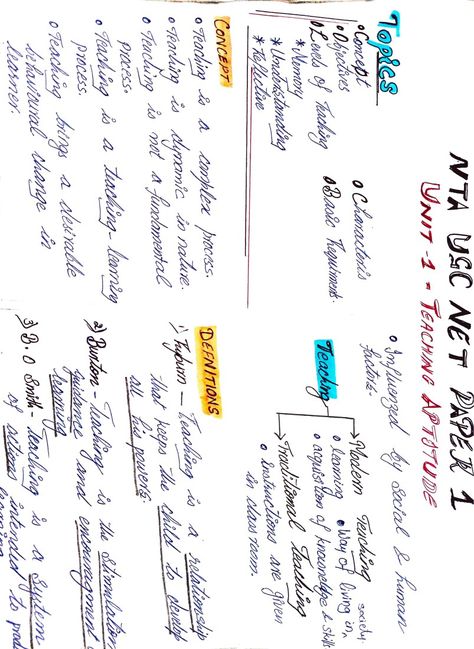 NTA UGC NET PAPER 1
UNIT-1 = TEACHING APTITUDE
Topics
• Concept
• Objectives
• Level of Teaching
* Memory
* Understanding
* Reflective
• Basic Requirment
CONCEPT
• Teaching is a complex process.
• Teaching is dynamic in nature.
• Teaching is not a fundamental
process.
• Teaching is a teaching-learning
process.
• Teaching brings a desirable
behavioural change in
learner.
• Influenced by social & human
factors.
Teaching
Modern Teaching
• Way of living in society
• learning
• acquistion of knowledge & skills
Traditional Teaching
• instructions are given
in classroom.
DEFINITIONS
1) — Teaching is a relationship
that keeps the child to develop
all his powers.
2) Burton - Teaching is the stimulation
guidance and encouragement
learning
3) B.O Smith - teaching is a system
of actions intended to